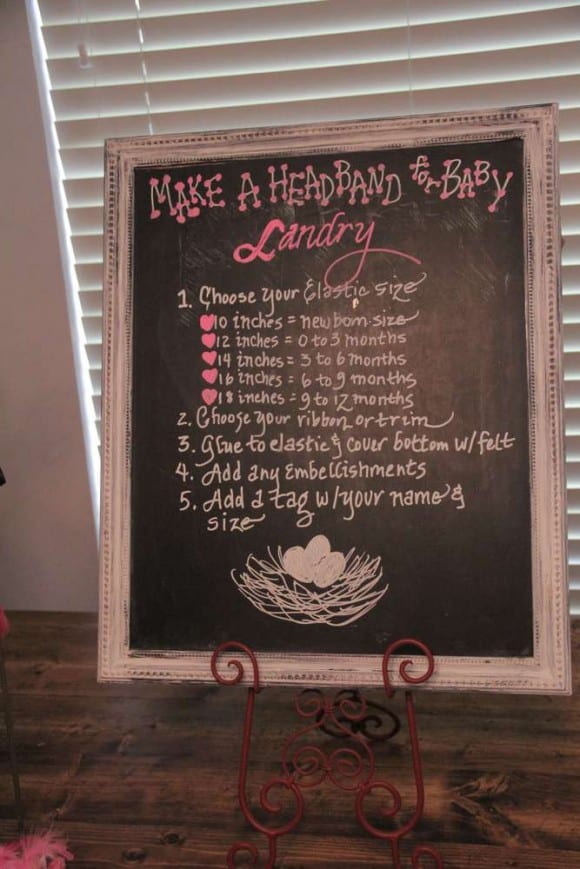 MAKE A HEADBAND for BABY
Landry
1. Choose your Elastic size
10 inches = newborn size
12 inches = 0 to 3 months
14 inches = 3 to 6 months
16 inches = 6 to 9 months
18 inches = 9 to 12 months
2. Choose your ribbon or trim
3. Glue to elastic & cover bottom w/felt
4. Add any Embellishments
5. Add a tag w/your name &
size